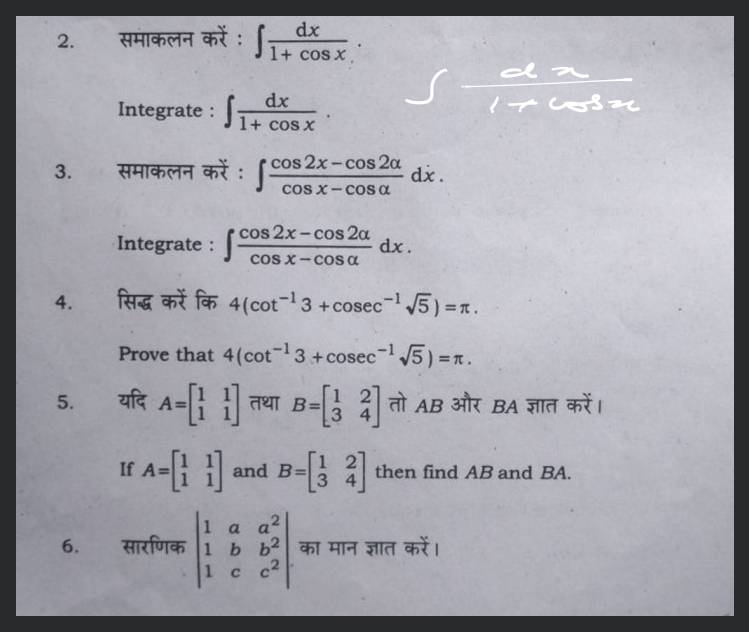 2. समाकलन करें : ∫ dx / (1 + cos x) .
∫ dx / (1 + cos x)
Integrate : ∫ dx / (1 + cos x) .
3. समाकलन करें : ∫ (cos 2x – cos 2α) / (cos x – cos α) dx .
Integrate : ∫ (cos 2x – cos 2α) / (cos x – cos α) dx .
4. सिद्ध करें कि 4(cot⁻¹ 3 + cosec⁻¹ √5) = π .
Prove that 4(cot⁻¹ 3 + cosec⁻¹ √5) = π .
5. यदि A = [1 1; 1 1] तथा B = [1 2; 3 4] तो AB और BA ज्ञात करें।
If A = [1 1; 1 1] and B = [1 2; 3 4] then find AB and BA.
6. सारणिक |1 a a²; 1 b b²; 1 c c²| का मान ज्ञात करें।